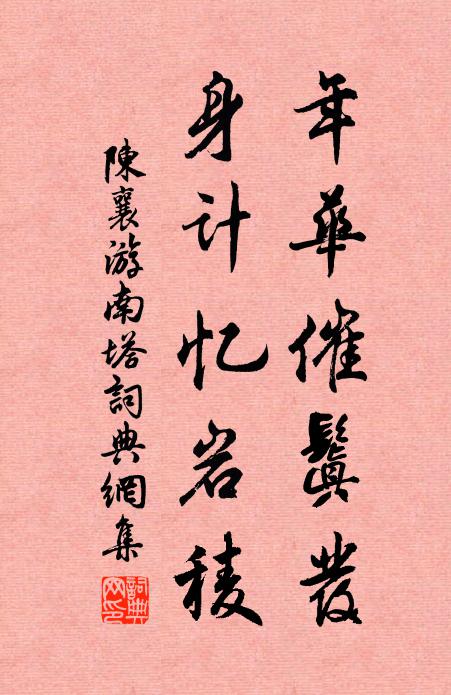 年華催鬒發
身计忆岩稜
陳襄游南塔詞典網集
詞典网印